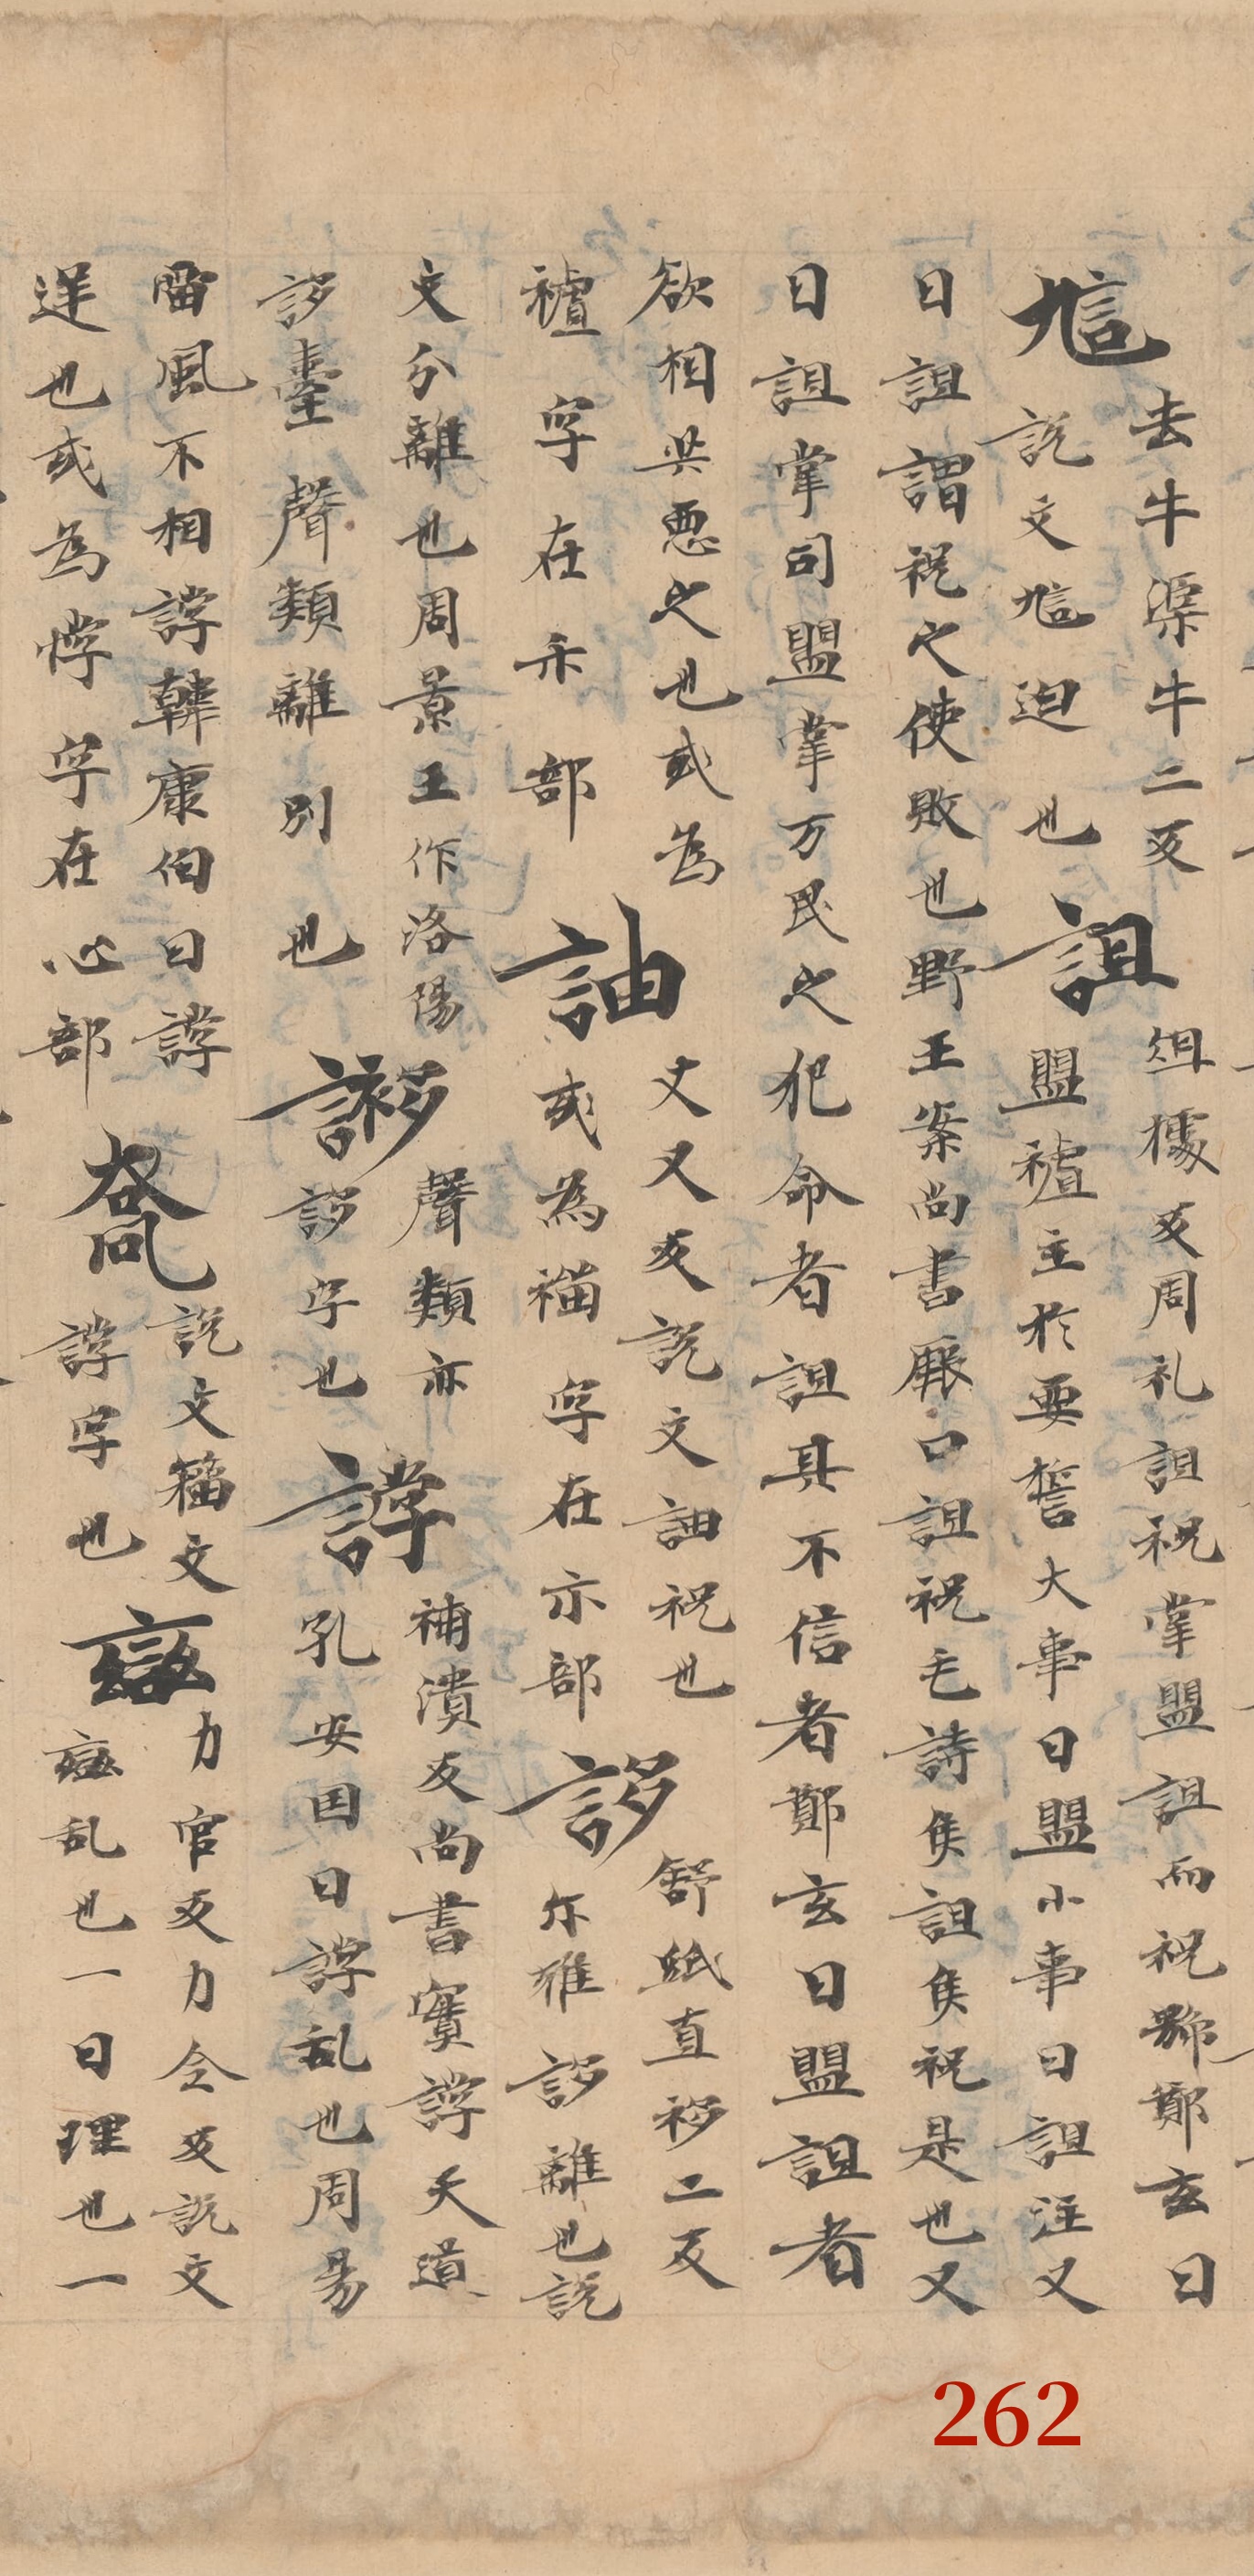 訄 去牛渠牛二反
說文訄迫也
詛 俎據反周礼詛祝掌盟詛而祝號鄭玄曰
盟𥛜主於要誓大事曰盟小事曰詛注又
曰詛謂祝之使敗也野王案尚書厥口詛祝毛詩侯詛侯祝是也又
曰詛掌司盟掌万民之犯命者詛其不信者鄭玄曰盟詛者
欲相與惡之也或為
𥛜字在示部
䛆 丈又反說文䛆祝也
或為字在示部
誃 舒紙直移二反
尔雅誃離也說
文分離也周景王作洛陽
誃臺聲類離別也
謻 聲類亦
誃字也
誖 補潰反尚書實誖天道
孔安国曰誖乱也周易
雷風不相誖韓康伯曰誖
逆也或為悖字在心部
說文籀文
誖字也
䜌 力官反力全反說文
䜌乱也一曰理也一
262